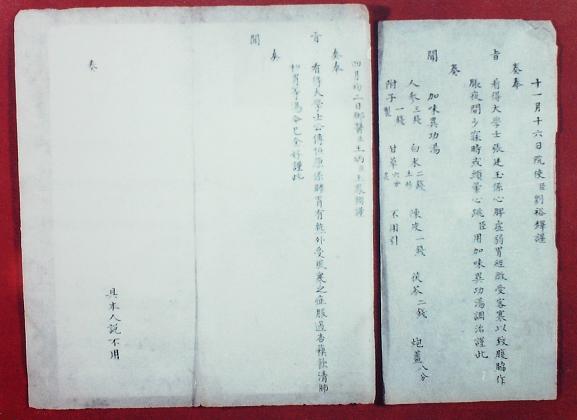 十一月十六日院使臣劉裕鐸謹
奏奉
旨看得大學士張廷玉係心脾虛弱胃經微受客寒以致腹脇作
脹夜間少寐時或頭暈心跳臣用加味異功湯調治謹此
奏
聞
加味異功湯
人參三錢 白朮二錢土炒 陳皮一錢 茯苓二錢 炮薑八分
附子一錢製 甘草六分炙 不用引
四月初二日御醫臣王炳臣王鳳翔謹
奏奉
旨看得大學士公傅恒原係肺胃有熱外受風寒之症服過杏蘇飲清肺
和胃等湯今已全好謹此
奏
聞
具本人說不用
奏